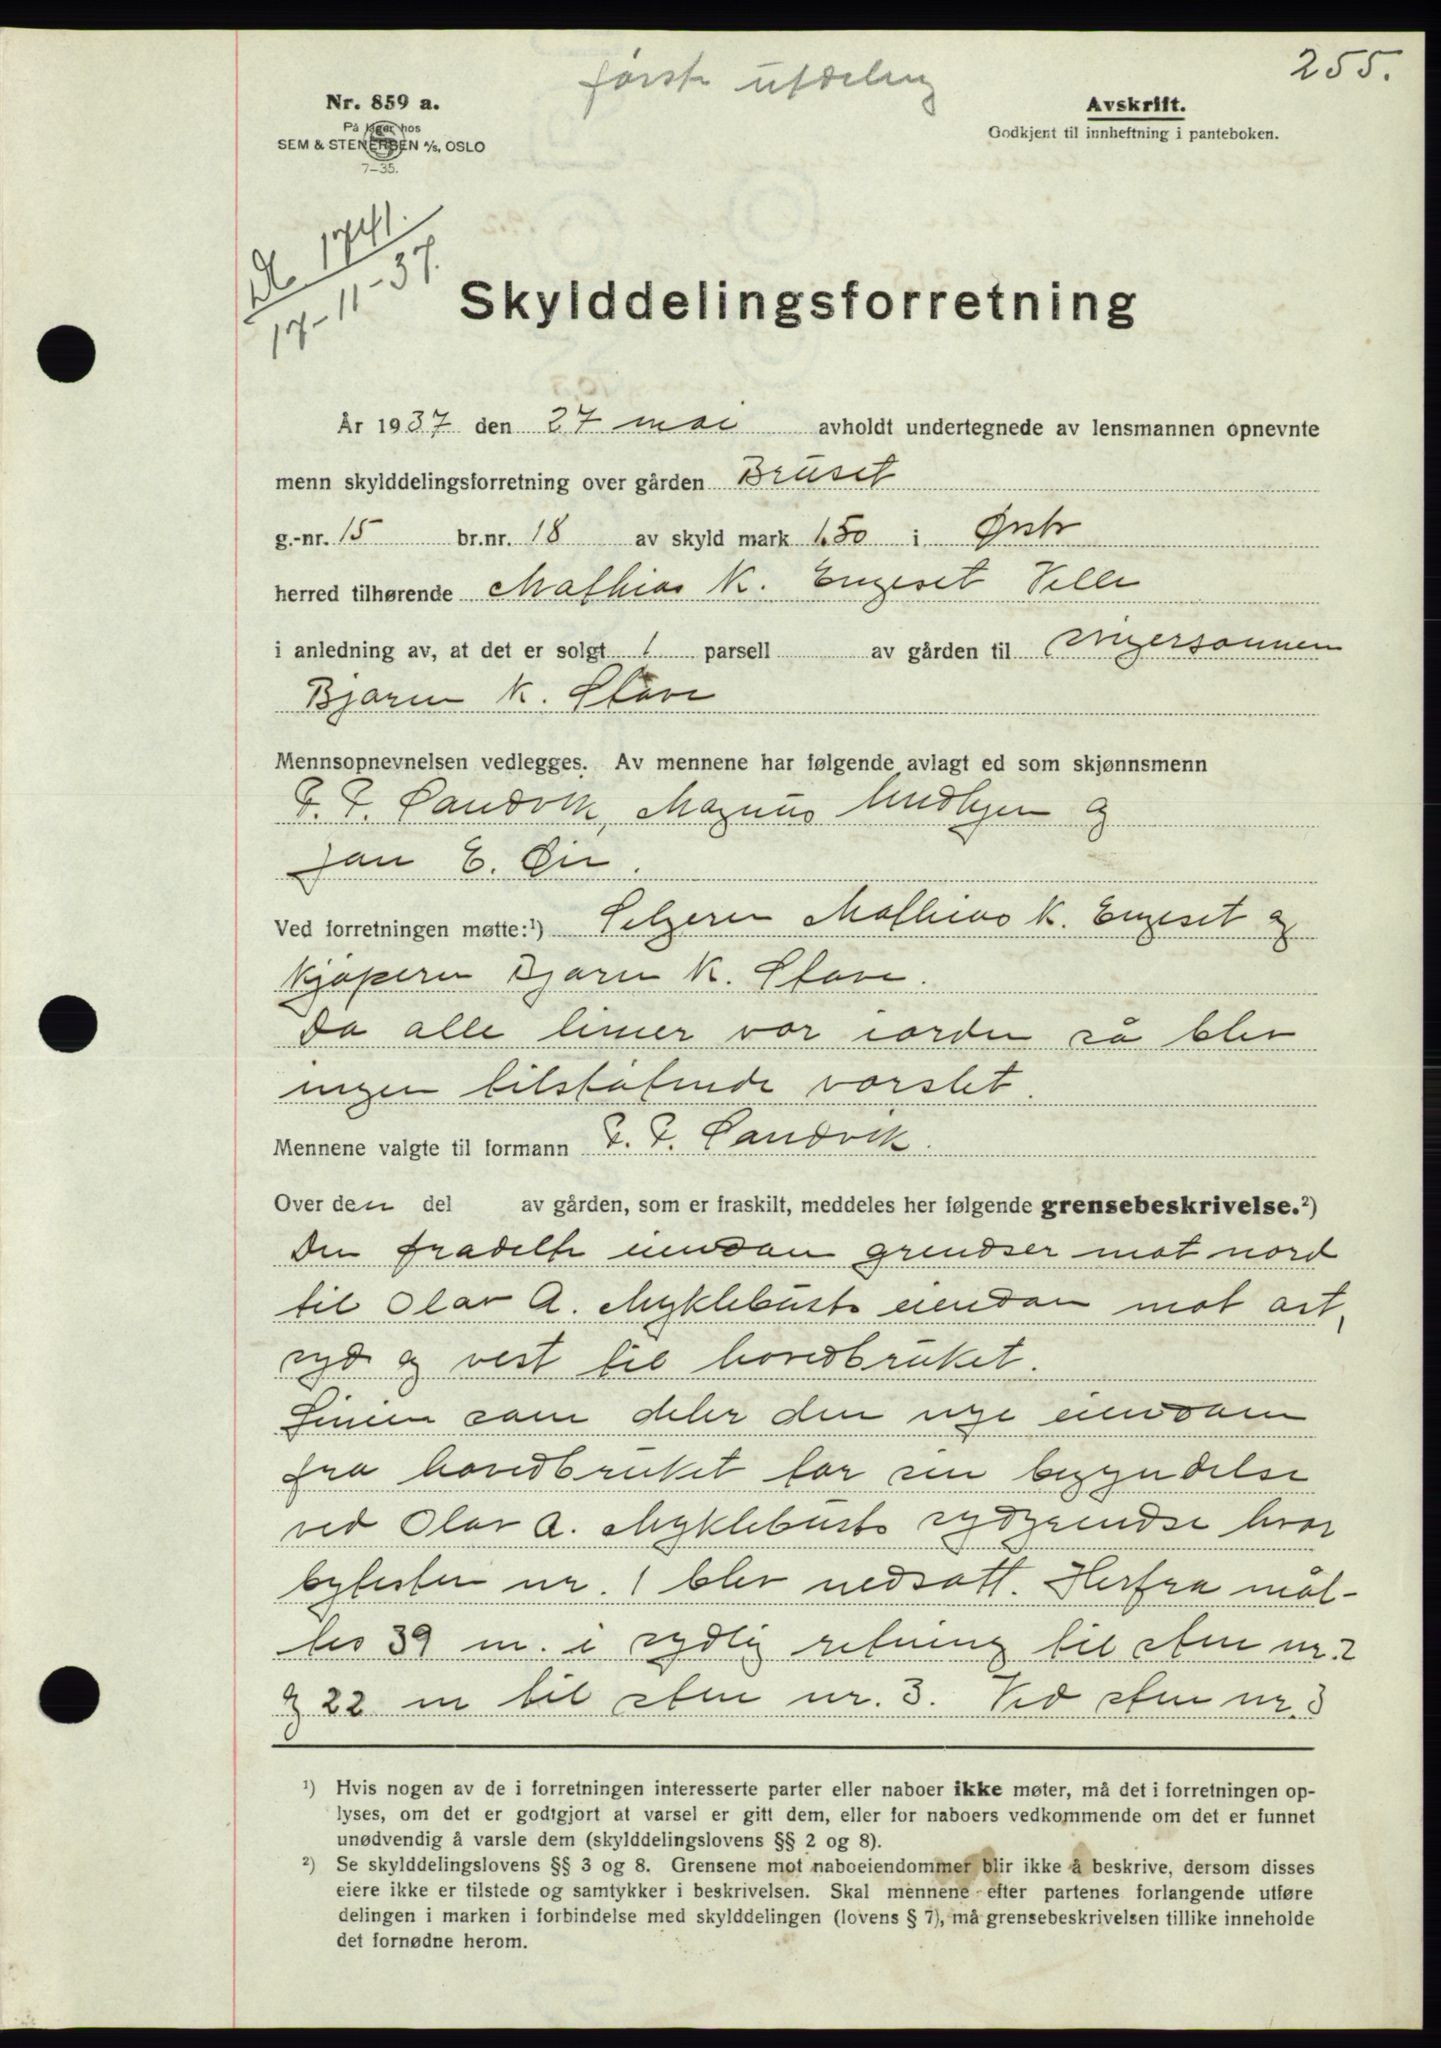 255.
første utdeling
Nr. 859 a.
På lager hos
SEM & STENERSEN A/S, OSLO
7-35.
Avskrift.
Godkjent til innheftning i panteboken.
1741.
17-11-37.
Skylddelingsforretning
År 1937 den 27 mai avholdt undertegnede av lensmannen opnevnte
menn skylddelingsforretning over gården Bruset
g.-nr. 15 br.nr. 18 av skyld mark 1.50 i Ørsta
herred tilhørende Mathias K. Engeset Velle
i anledning av, at det er solgt 1 parsell av gården til svigersønnen
Bjarne K. Stave
Mennsopnevnelsen vedlegges. Av mennene har følgende avlagt ed som skjønnsmenn
Sandvik, Magnus og
Jan E. Øie.
Ved forretningen møtte:¹) Selgeren Mathias K. Engeset og
kjøperen Bjarne K. Stave.
Da alle linier var iorden så blev
ingen tilstøtende varslet.
Mennene valgte til formann Sandvik.
Over den del av gården, som er fraskilt, meddeles her følgende grensebeskrivelse.²)
Den fradelte eiendom grendser mot nord
til Olav A. Myklebusts eiendom mot øst,
syd og vest til hovedbruket.
Linien som deler den nye eiendom
fra hovedbruket tar sin begyndelse
ved Olav A. Myklebusts sydgrendse hvor
bytesten nr. 1 blev nedsatt. Herfra mål-
tes 39 m. i sydlig retning til sten nr. 2
og 22 m til sten nr. 3. Ved sten nr. 3
¹) Hvis nogen av de i forretningen interesserte parter eller naboer ikke møter, må det i forretningen op-
lyses, om det er godtgjort at varsel er gitt dem, eller for naboers vedkommende om det er funnet
unødvendig å varsle dem (skylddelingslovens §§ 2 og 8).
²) Se skylddelingslovens §§ 3 og 8. Grensene mot naboeiendommer blir ikke å beskrive, dersom disses
eiere ikke er tilstede og samtykker i beskrivelsen. Skal mennene efter partenes forlangende utføre
delingen i marken i forbindelse med skylddelingen (lovens § 7), må grensebeskrivelsen tillike inneholde
det fornødne herom.